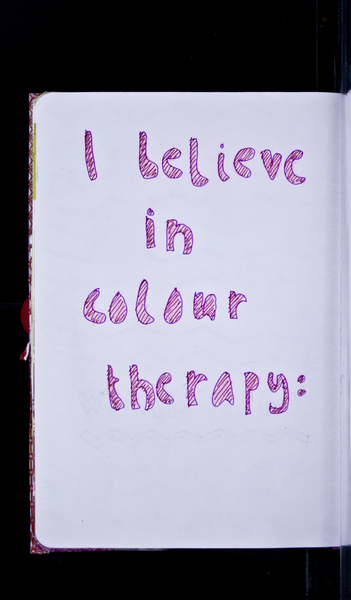 I believe
in
colour
therapy: